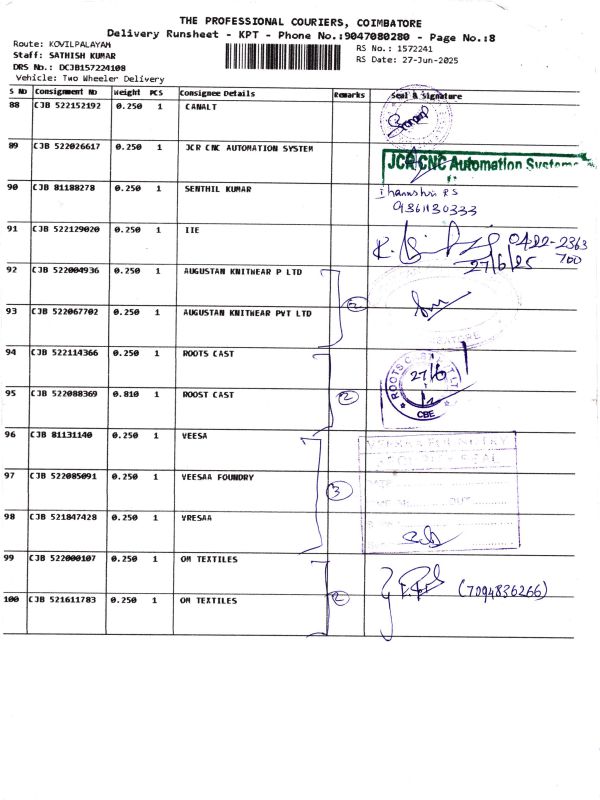 THE PROFESSIONAL COURIERS, COIMBATORE
Delivery Runsheet - KPT - Phone No.:9047080280 - Page No.:8
Route: KOVILPALAYAM
Staff: SATHISH KUMAR
DRS No.: DCJB157224108
Vehicle: Two Wheeler Delivery
RS No.: 1572241
RS Date: 27-Jun-2025
S No Consignment No Weight PCS Consignee Details Remarks Seal & Signature
88 CJB 522152192 0.250 1 CANALT
89 CJB 522026617 0.250 1 JCR CNC AUTOMATION SYSTEM
JCR CNC Automation Systems
90 CJB 81188278 0.250 1 SENTHIL KUMAR
RS
9361130333
91 CJB 522129020 0.250 1 IIE
0422-2363
700
27/6/25
92 CJB 522004936 0.250 1 AUGUSTAN KNITWEAR P LTD
2
93 CJB 522067702 0.250 1 AUGUSTAN KNITWEAR PVT LTD
94 CJB 522114366 0.250 1 ROOTS CAST
27/6
ROOTS
CBE
95 CJB 522088369 0.810 1 ROOST CAST
2
96 CJB 81131140 0.250 1 VEESA
97 CJB 522085091 0.250 1 VEESAA FOUNDRY
3
98 CJB 521847428 0.250 1 VRESAA
99 CJB 522000107 0.250 1 OM TEXTILES
(7094836266)
100 CJB 521611783 0.250 1 OM TEXTILES
2